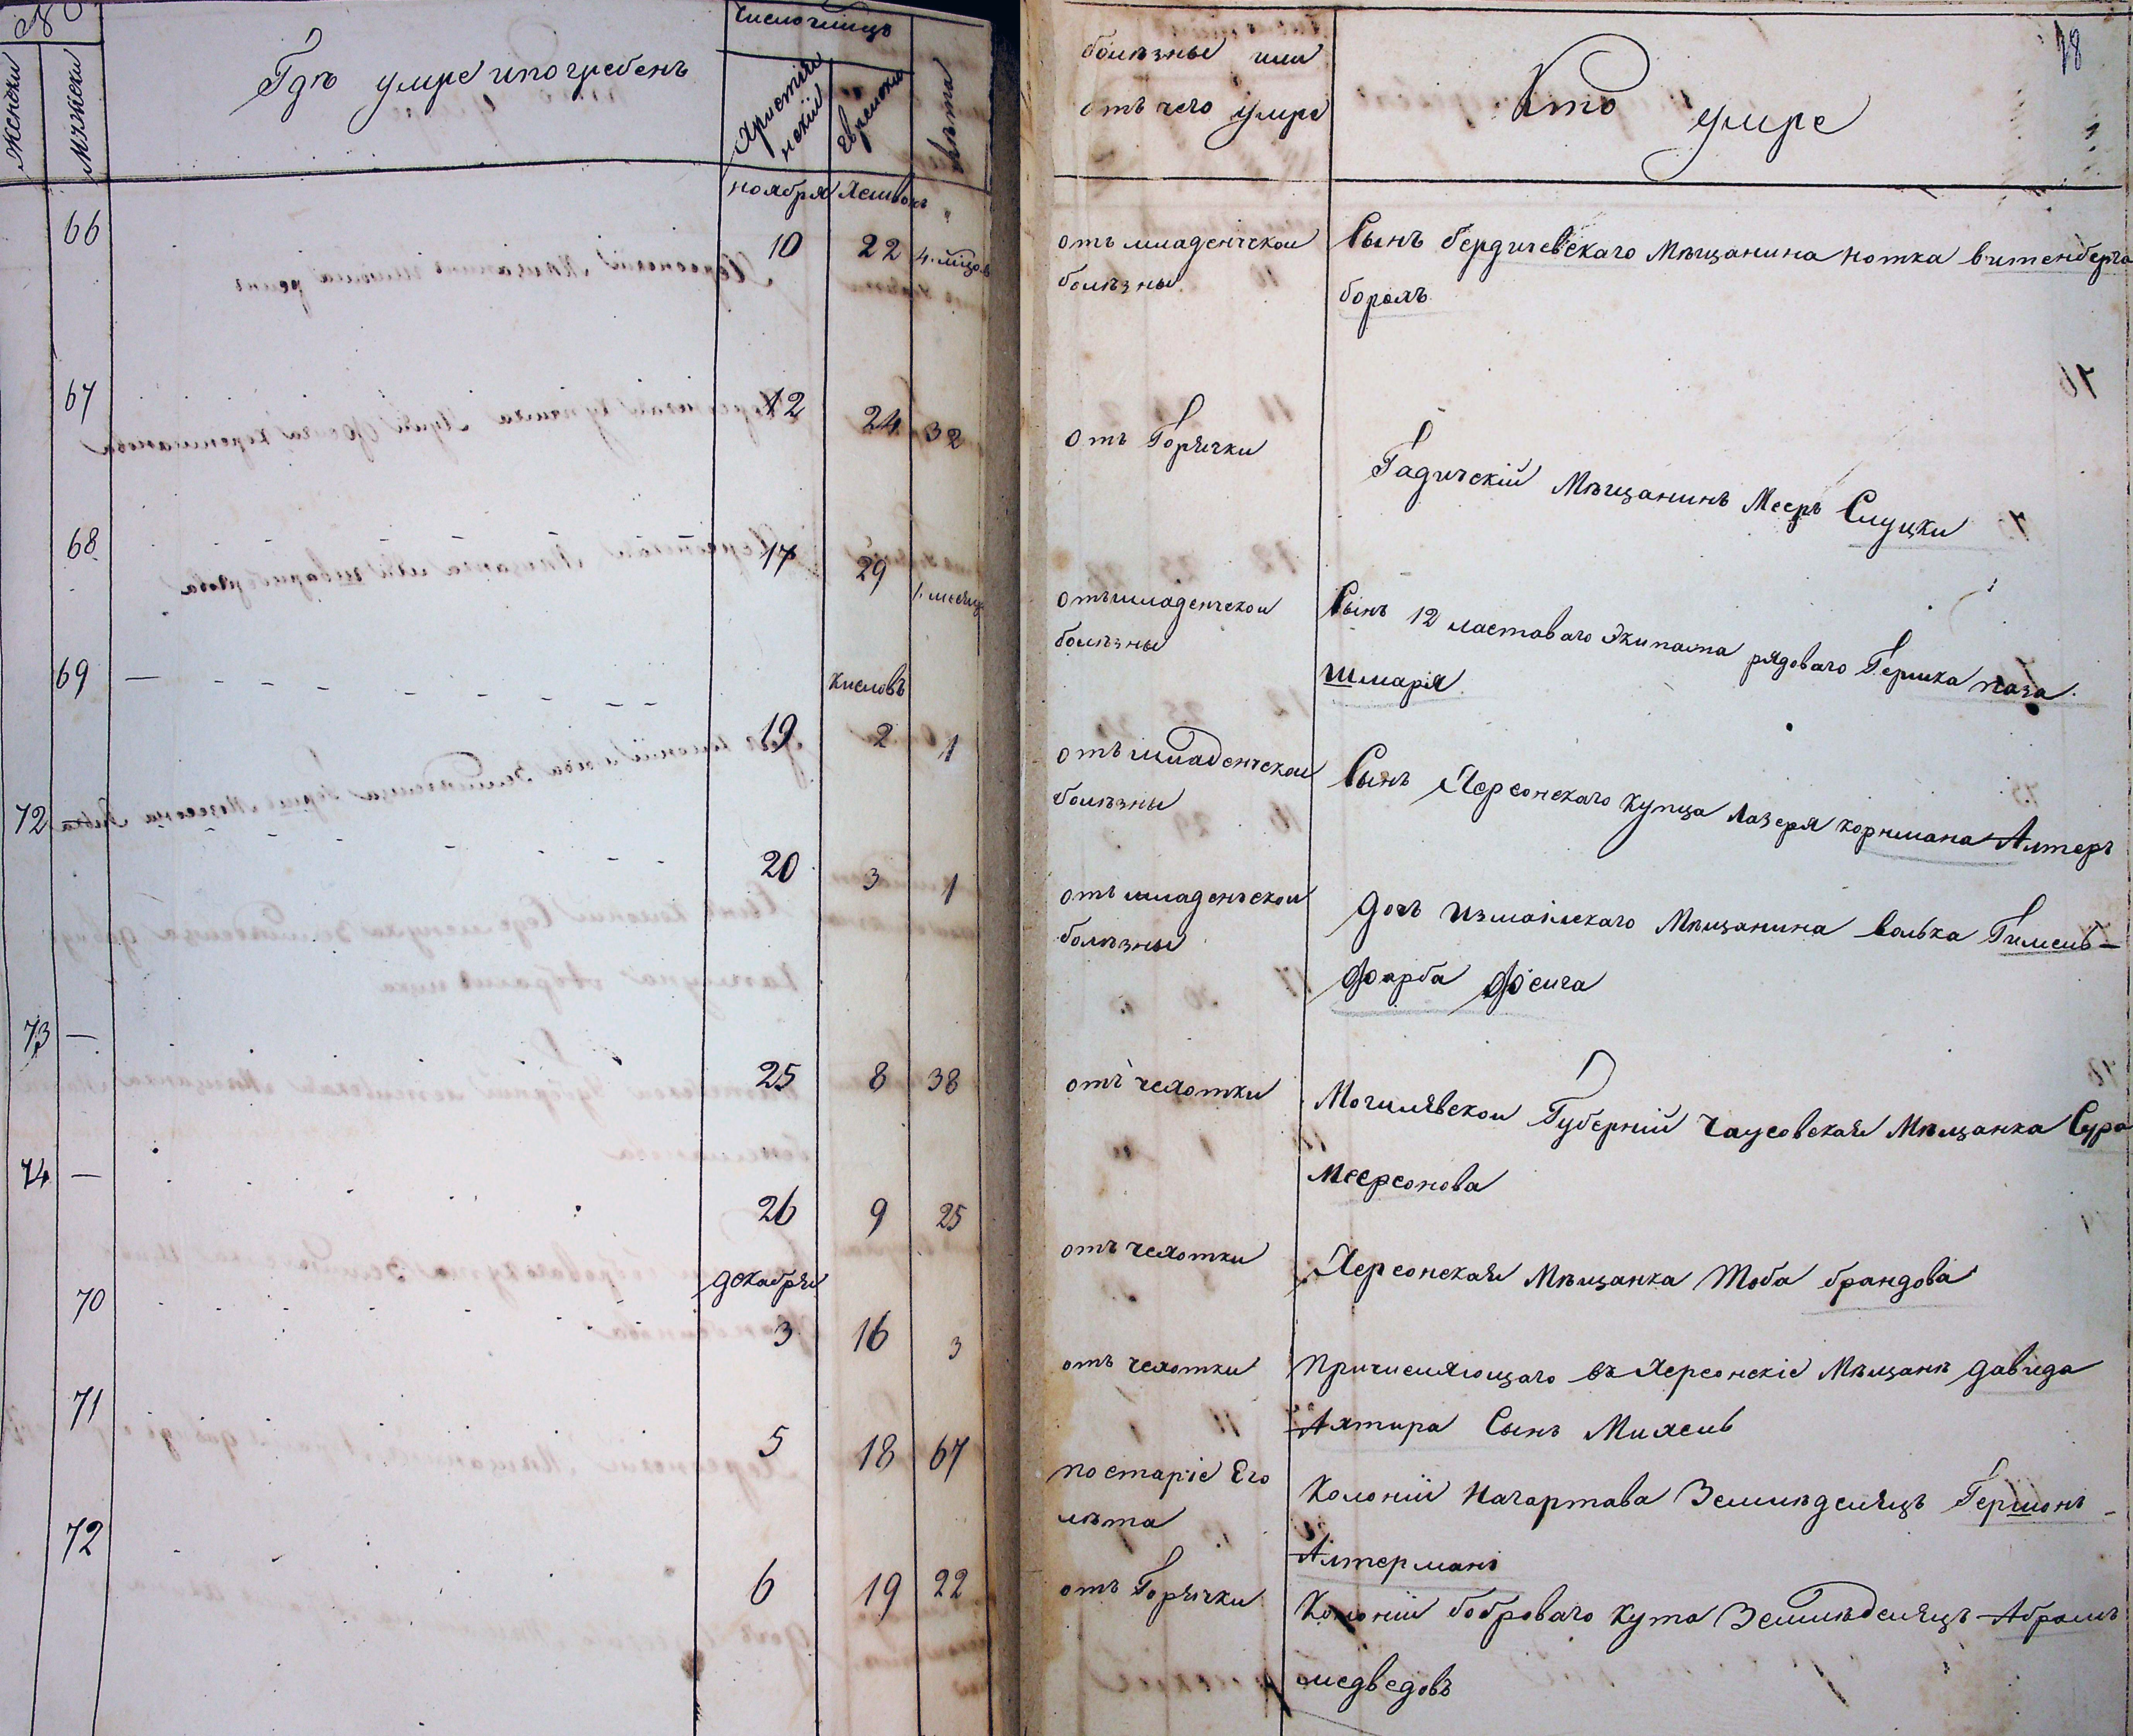 №
Женски
Мужески
Гдѣ умре ипогребенъ
Число имцъ
Христiян
нскiй
Еврейски
Лѣта
болѣзны или
отъ чего умре
Кто умре
ноября Хешвонъ
66 10 22 4 мцов
отъ младенческои
болѣзны
Сынъ бердичевскаго Мѣщанина нотка витенберга
борохъ
67 12 24 32
отъ Горячки
Гадичскiй Мѣщанинъ Мееръ Слуцки
68 17 29 1 месяц
отъ младенческои
болѣзны
Сынъ 12 ластоваго Экипажа рядоваго Гершка паза
шмарiя
Кислевъ
69 19 2 1
отъ младенческои
болѣзны
Сынъ Херсонскаго купца Лазеря корнмана Алтеръ
72 — 20 3 1
отъ младенческои
болѣзны
дочъ измаилскаго Мѣщанина волька Гимель-
фарба фейга
73 — 25 8 38
отъ чехотки
Могилявскои Губернiй чаусовская Мѣщанка Сура
Меерсонова
74 — 26 9 25
отъ чехотки
Херсонская Мѣщанка Тоба брандова
декабря
70 3 16 3
отъ чехотки
Причисляющаго въ Херсонскiе Мѣщане давида
Ахтира Сынъ Михель
71 5 18 67
по старiе Его
лѣта
Колонiй Нагартава Земледелецъ Гершонъ
Алтерманъ
72 6 19 22
отъ Горячки
Колонiй боброваго кута Земледелецъ Абрамъ
медведовъ